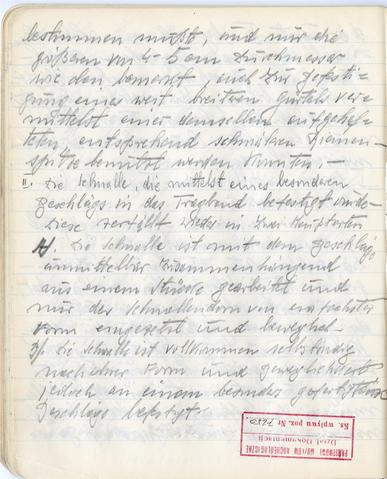 bestimmen muss, und nur die
größeren von 4-5 cm Durchmesser
wie den bemerkt auch zur Befesti-
gung eines weit breiteren Gürtels ver-
mittelst einer demselben aufgehef-
teten, entsprechend schmäleren Riemen-
spitze benützt werden konnten.-
II. Die Schnalle, die mittelst eines besonderen
Beschlägs in das Tragband befestigt wurde-
Diese zerfällt wieder in zwei Hauptarten
A). Die Schnalle ist mit dem Beschläge
unmittelbar zusammenhängend
aus einem Stücke gearbeitet und
nur der Schnallendorn von einfachster
Form eingesetzt und beweglich.-
B) Die Schnalle ist vollkommen selbständig
nach ihrer Form und Beweglichkeit
jedoch an einem besonders gefertigten
Beschläge befestigt.
PAŃSTWOWE MUZEUM ARCHEOLOGICZNE
Dział Dokumentacji
Ks. wpływu poz. Nr